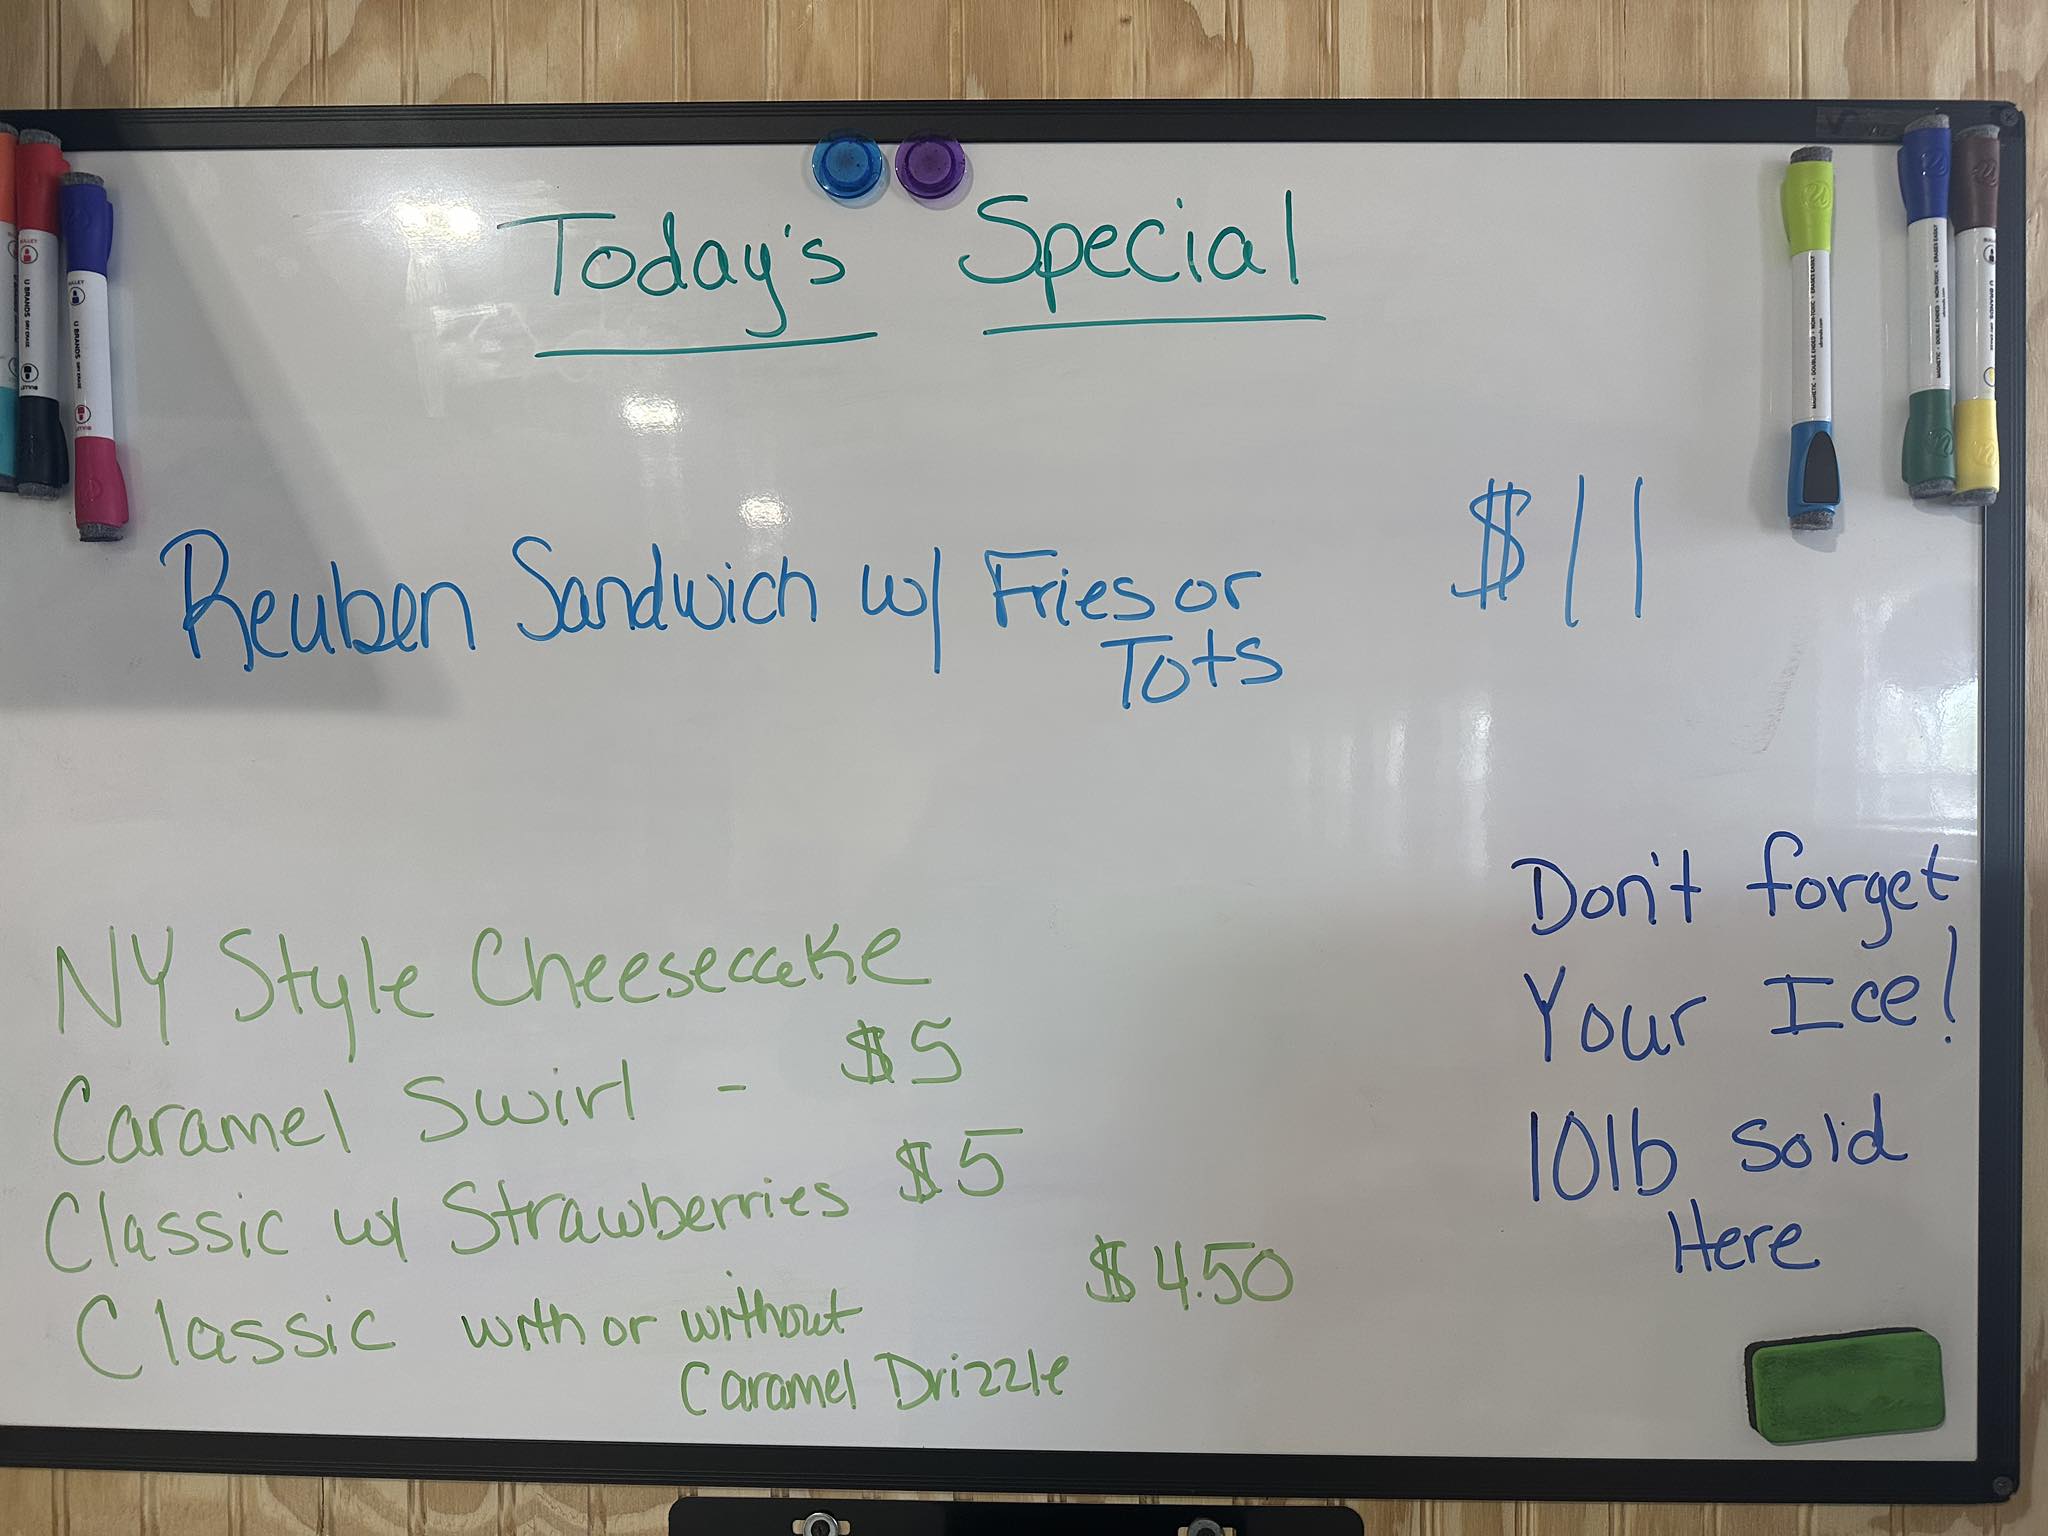 Today's Special
Reuben Sandwich w/ Fries or
Tots
$11
NY Style Cheesecake
Caramel Swirl - $5
Classic w/ Strawberries $5
Classic with or without
Caramel Drizzle
$4.50
Don't forget
Your Ice!
10lb sold
Here
U BRANDS
U BRANDS